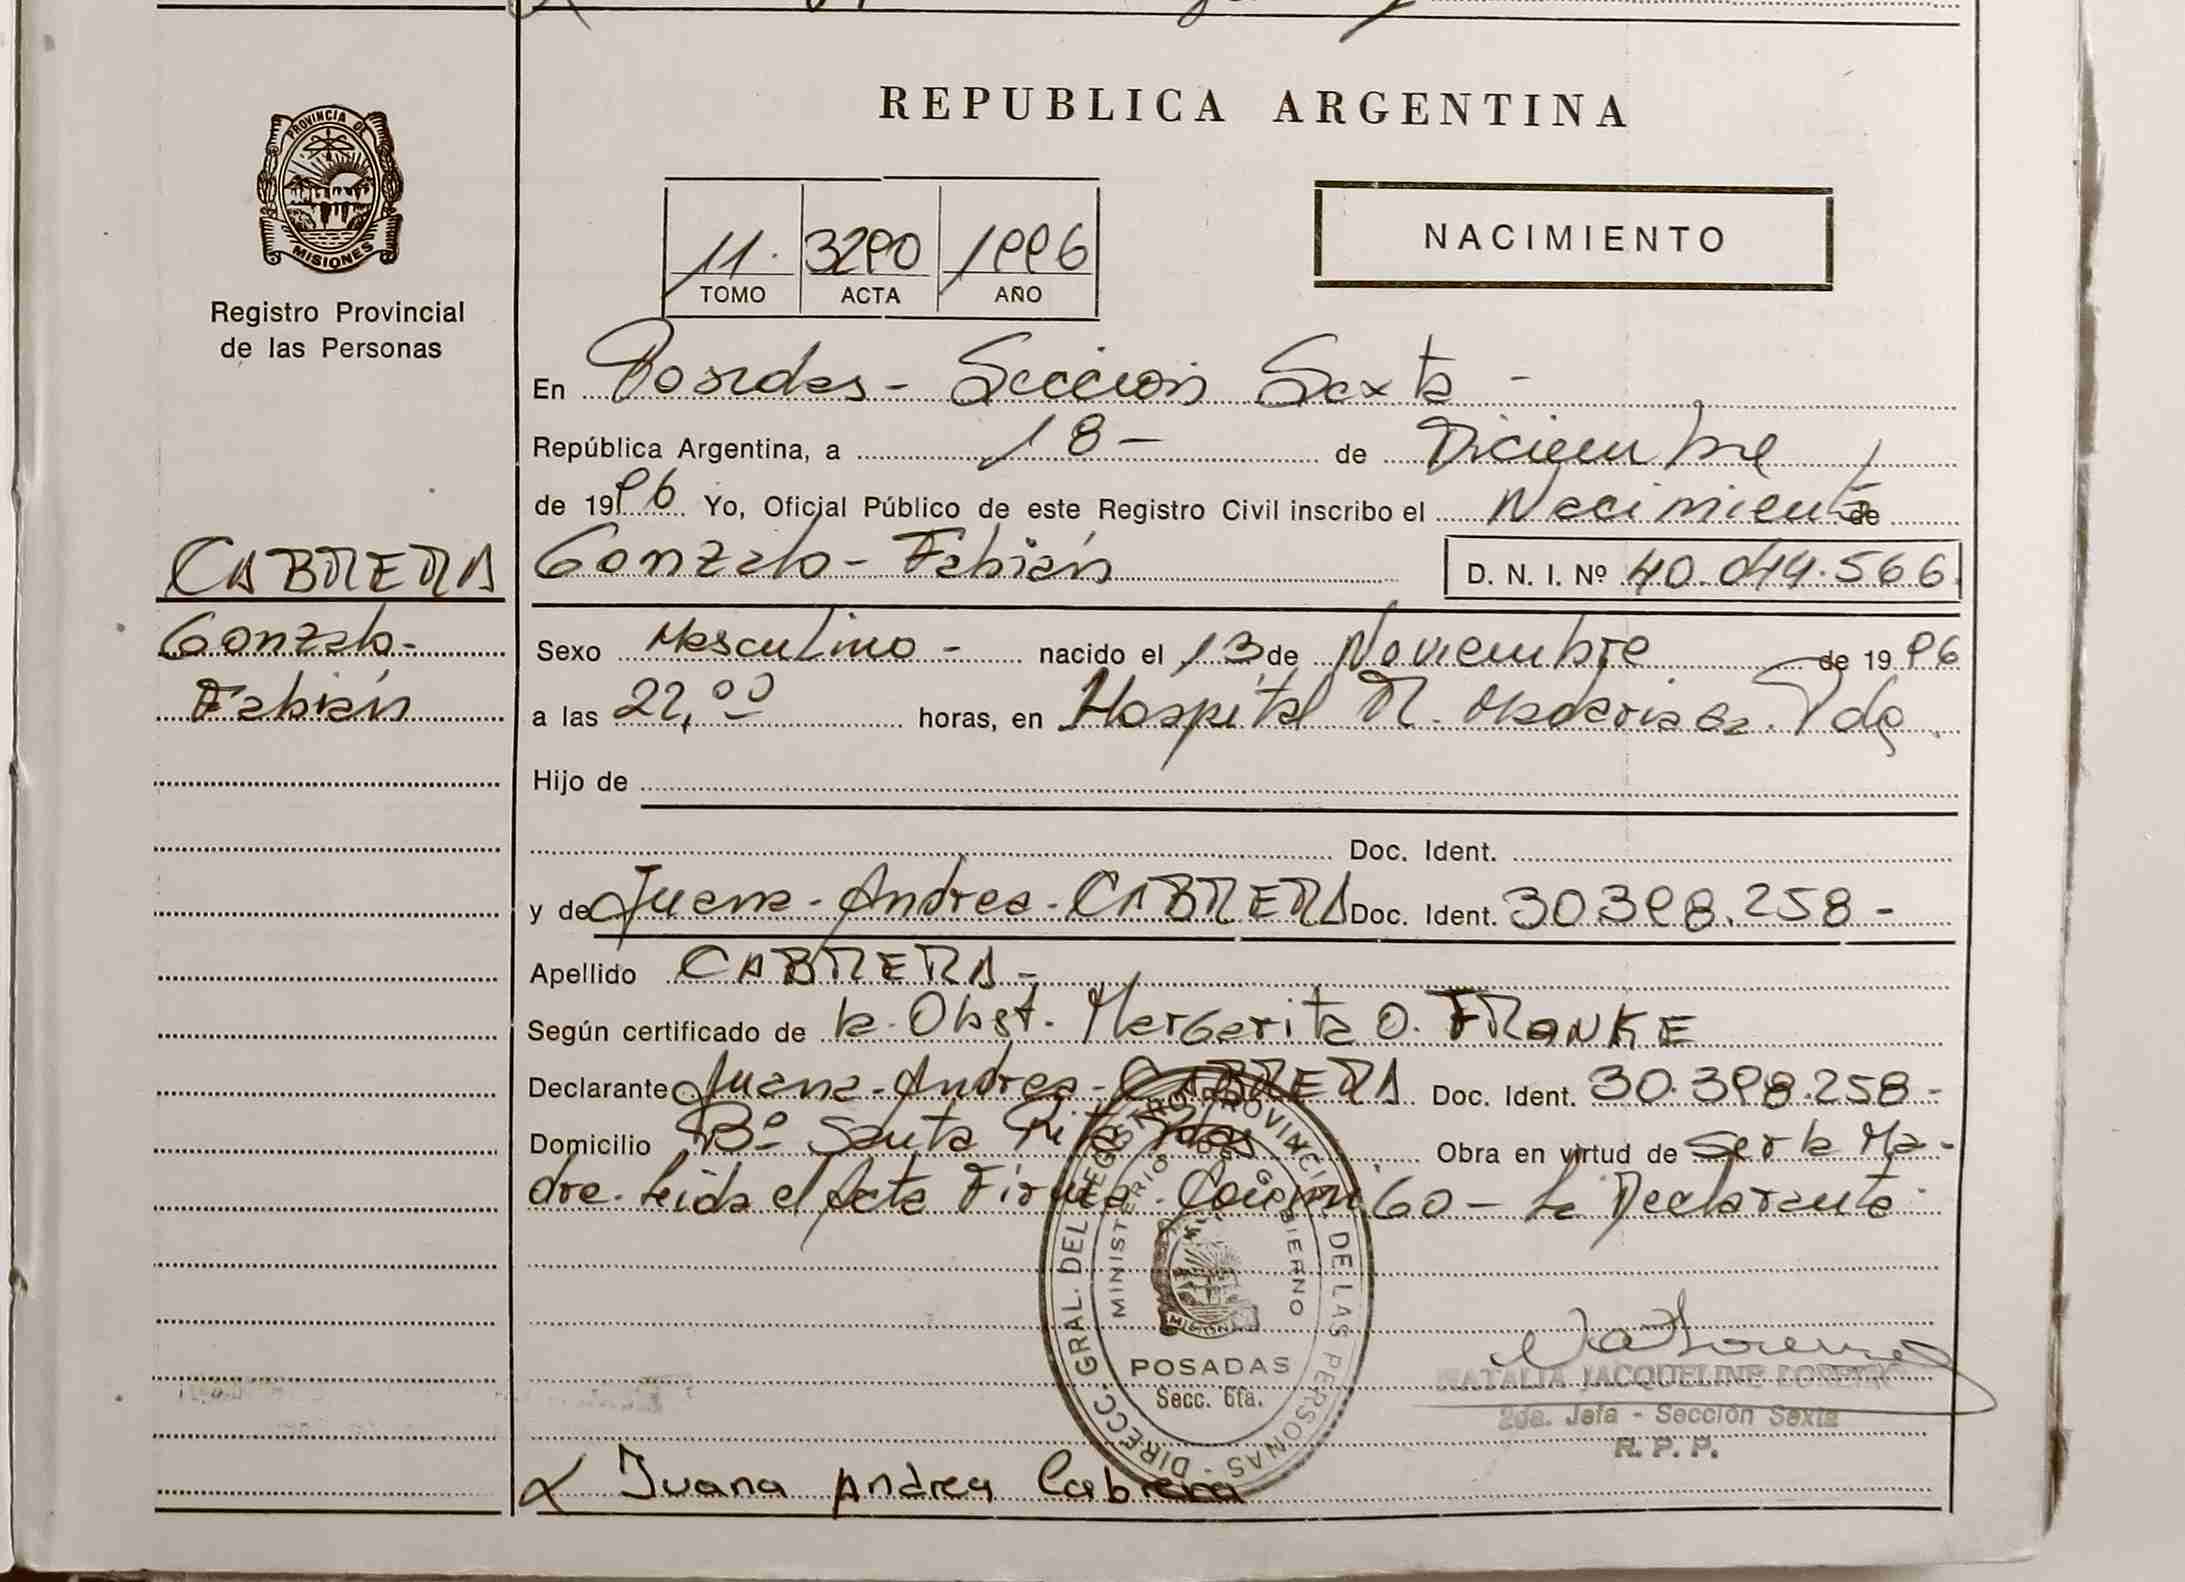 REPUBLICA ARGENTINA
PROVINCIA DE
MISIONES
Registro Provincial
de las Personas
NACIMIENTO
11. 3290 1996
TOMO ACTA AÑO
En Posadas - Sección Sexta -
República Argentina, a 18 - de Diciembre
de 1996 Yo, Oficial Público de este Registro Civil inscribo el Nacimiento de
CABRERA Gonzalo - Fabián D. N. I. Nº 40.044.566
Gonzalo - Sexo Masculino - nacido el 13 de Noviembre de 1996
Fabián a las 22,00 horas, en Hospital R. Madariaga. Pdas
Hijo de
Doc. Ident.
y de Juana - Andrea - CABRERA Doc. Ident. 30.398.258 -
Apellido CABRERA -
Según certificado de la Obst. Margarita O. FRANKE
Declarante Juana - Andrea - CABRERA Doc. Ident. 30.398.258 -
Domicilio Bº Santa Rita Pdas Obra en virtud de ser la Ma-
dre. Leida el Acta Firma Conmigo - La Declarante
DIRECC. GRAL. DEL REGISTRO PROVINCIAL DE LAS PERSONAS -
MINISTERIO DE GOBIERNO
MISIONES
POSADAS
Secc. 6ta.
NATALIA JACQUELINE LOREIRO
2da. Jefa - Sección Sexta
R. P. P.
Juana Andrea Cabrera